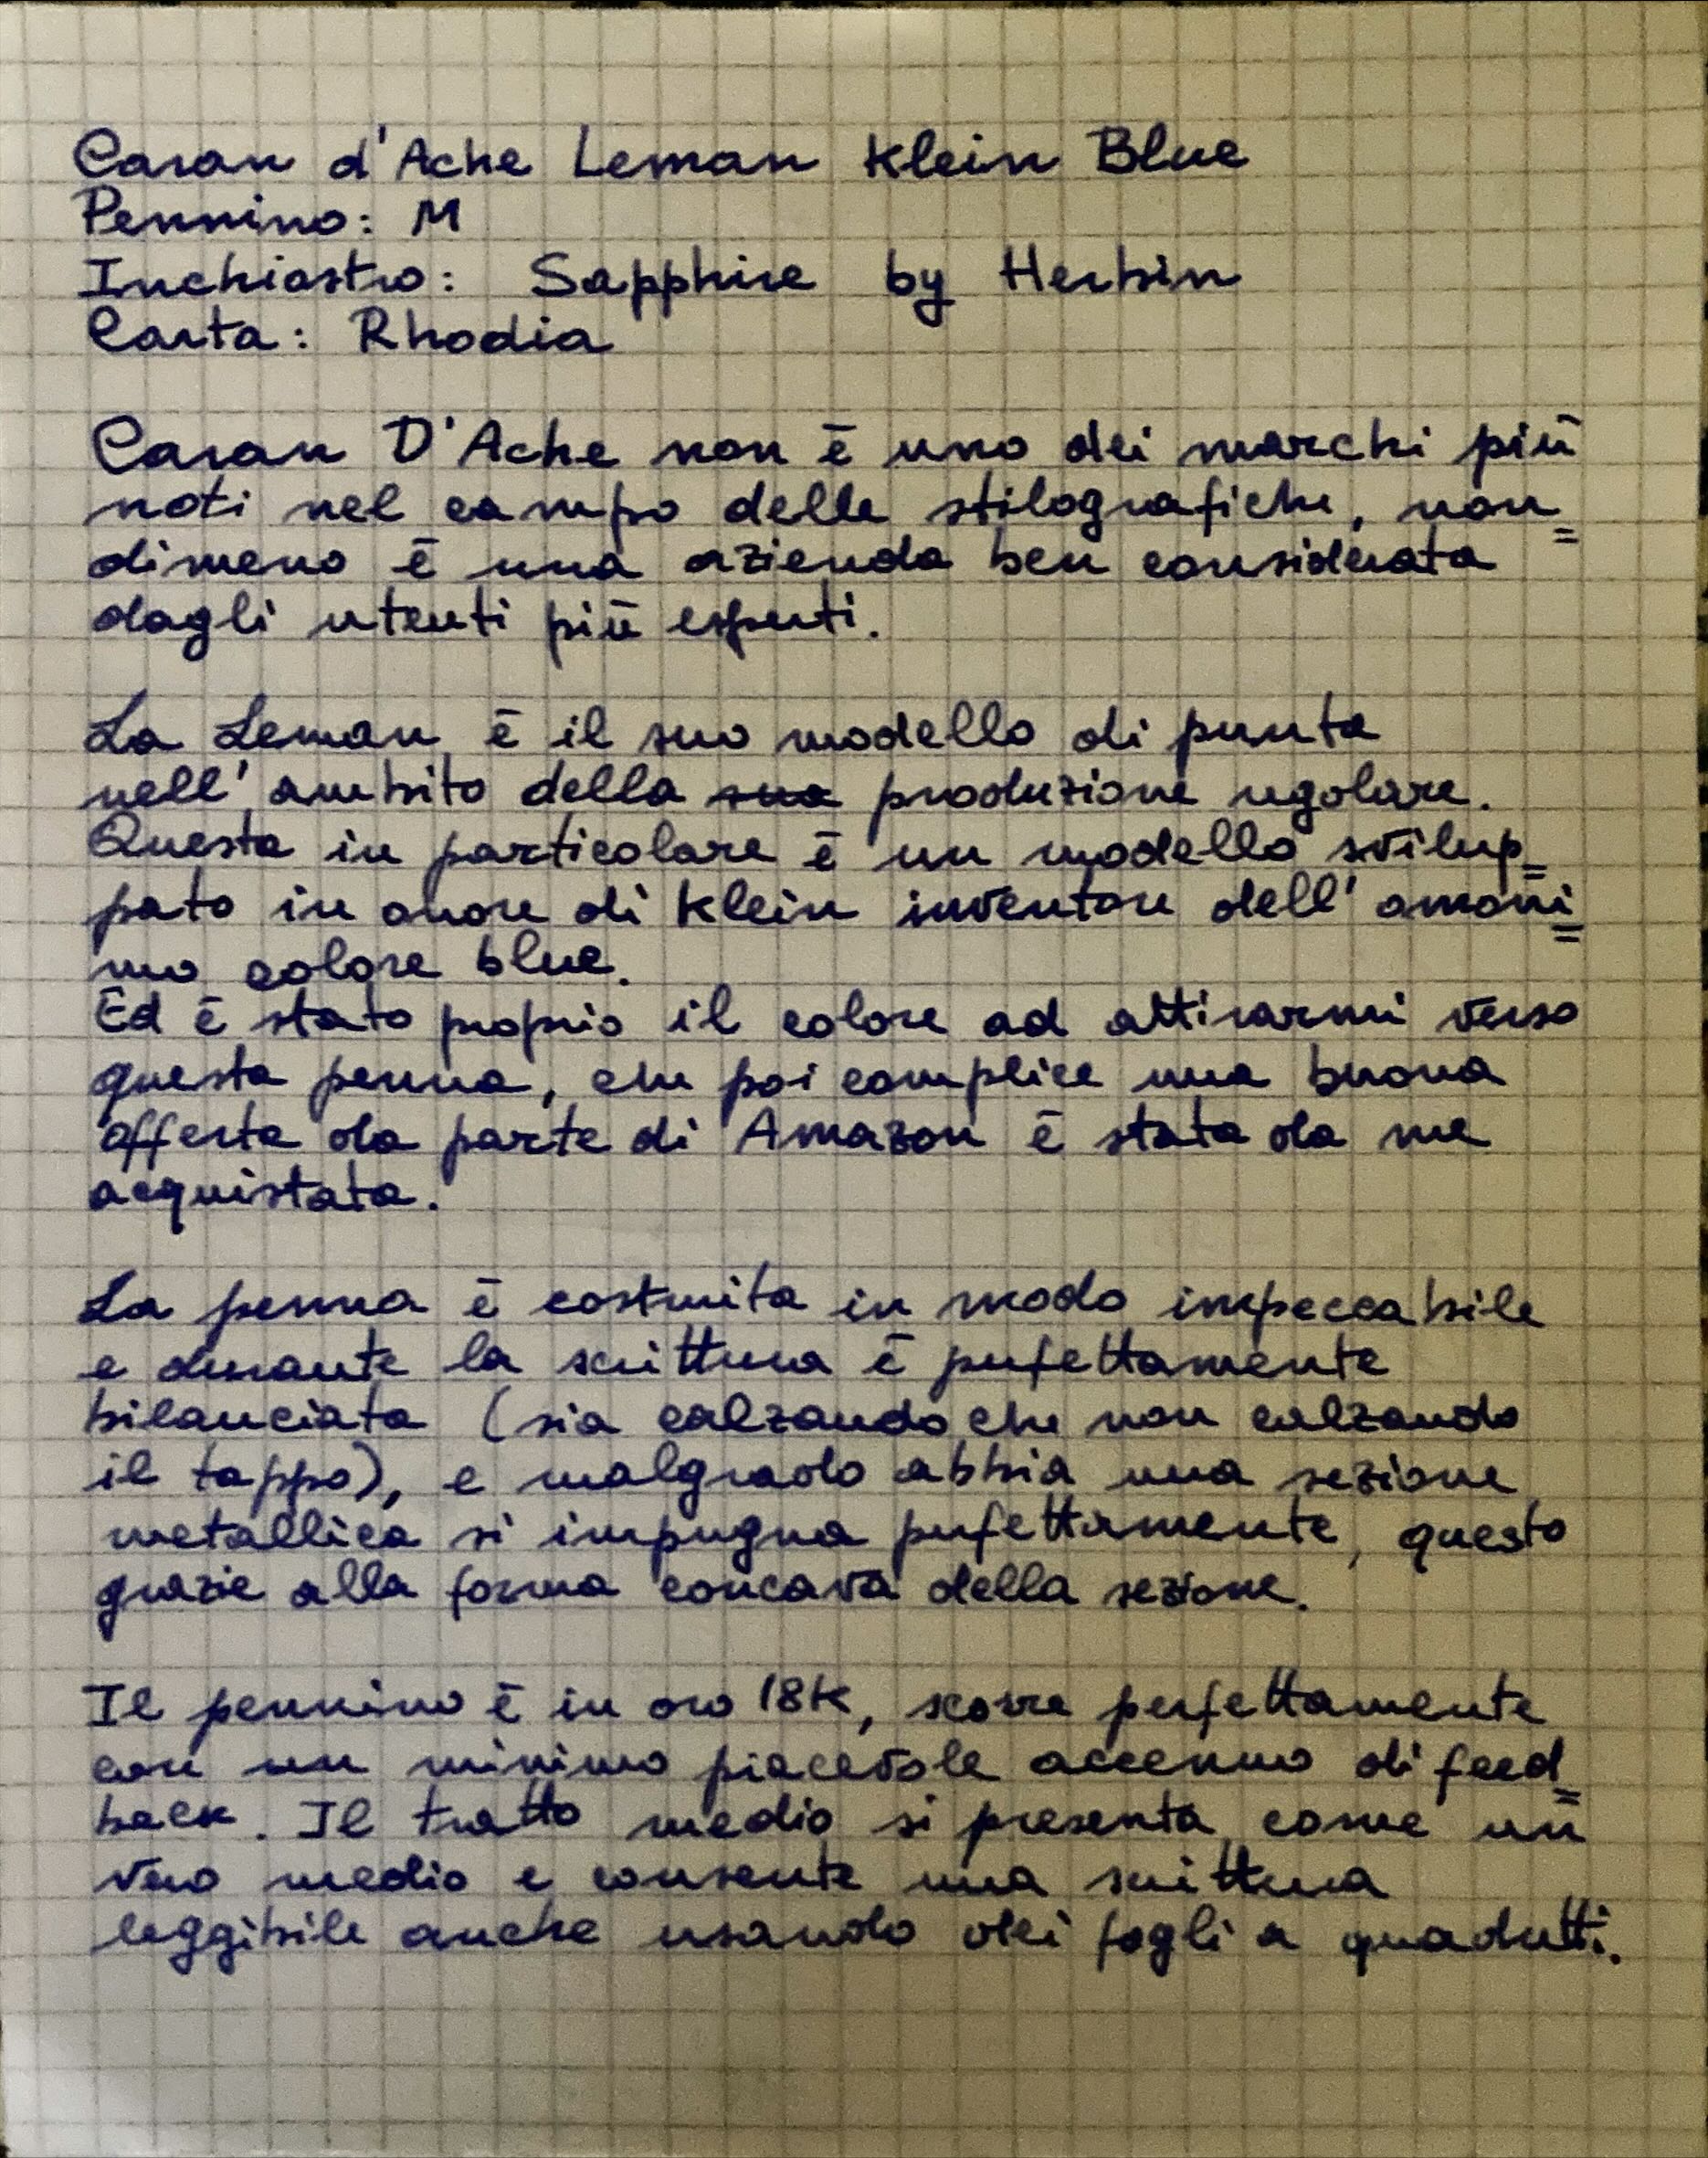 Caran d'Ache Leman Klein Blue
Pennino: M
Inchiostro: Sapphire by Herbin
Carta: Rhodia
Caran D'Ache non è uno dei marchi più
noti nel campo delle stilografiche, non=
dimeno è una azienda ben considerata
dagli utenti più esperti.
La Leman è il suo modello di punta
nell'ambito della sua produzione regolare.
Questa in particolare è un modello svilup=
pato in onore di Klein inventore dell'omoni=
mo colore blue.
Ed è stato proprio il colore ad attirarmi verso
questa penna, che poi complice una buona
offerta da parte di Amazon è stata da me
acquistata.
La penna è costruita in modo impeccabile
e durante la scrittura è perfettamente
bilanciata (sia calzando che non calzando
il tappo), e malgrado abbia una sezione
metallica si impugna perfettamente, questo
grazie alla forma concava della sezione.
Il pennino è in oro 18K, scorre perfettamente
con un minimo piacevole accenno di feed=
back. Il tratto medio si presenta come un
vero medio e consente una scrittura
leggibile anche usando dei fogli a quadretti.